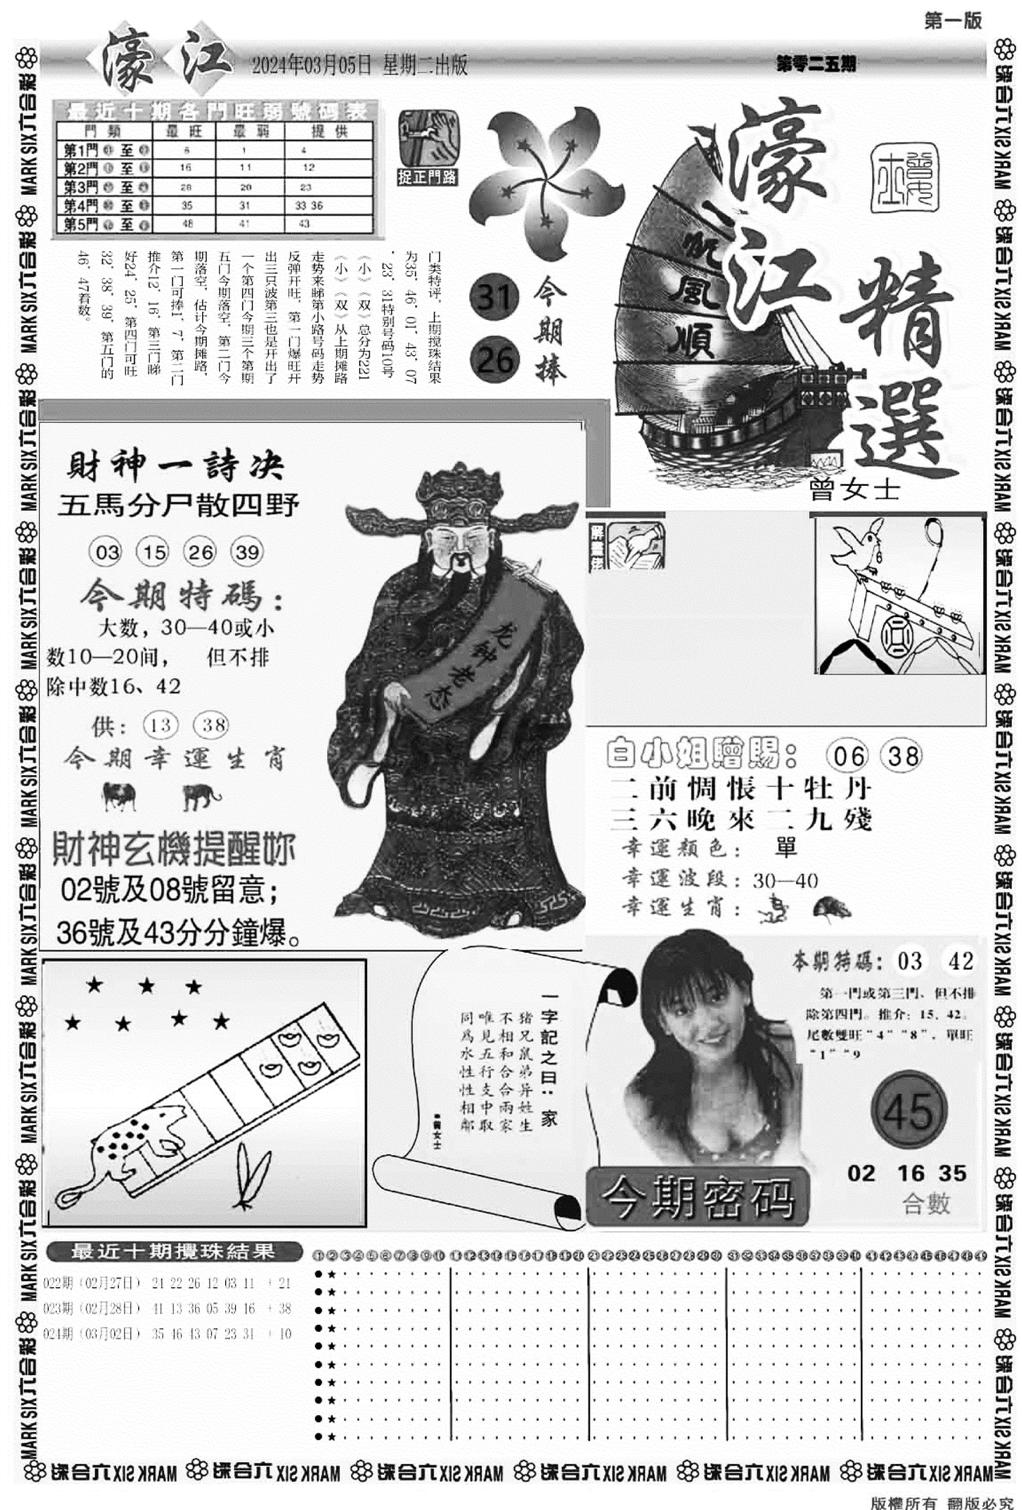 第一版
濠江
2024年03月05日 星期二出版
第零二五期
最近十期各門旺弱號碼表
門類 最旺 最弱 提供
第1門 至 6 1 4
第2門 至 16 11 12
第3門 至 28 20 23
第4門 至 35 31 33 36
第5門 至 48 41 43
捉正門路
门类特评，上期搅珠结果
为35′46′01′43′07
′23′31特别号码10号
（小）（双）总分为221
（小）（双）从上期摊路
走势来睇第小路号码走势
反弹开旺，第一门爆旺开
出三只波第三也是开出了
一个第四门今期三个第期
五门今期落空，第二门今
期落空，估计今期摊路，
第一门可捧1′7′第二门
推介12′16′第三门睇
好24′25′第四门可旺
32′38′39′第五门的
46′47着数。
31
26
今期捧
一帆風順
濠江
精選
曾女士
財神一詩决
五馬分尸散四野
03 15 26 39
今期特碼：
大数，30—40或小
数10—20间， 但不排
除中数16、42
供：13 38
今期幸運生肖
財神玄機提醒妳
02號及08號留意；
36號及43分分鐘爆。
龙钟老态
白小姐贈賜：06 38
二前惆悵十牡丹
三六晚來二九殘
幸運顏色： 單
幸運波段：30—40
幸運生肖：
一字記之曰：家
猪兄鼠弟异姓生
不相和合合兩家
唯見五行支中取
同爲水性性相鄰
●曾女士
本期特碼：03 42
第一門或第三門、但不排
除第四門。推介：15、42。
尾數雙旺“4”“8”，單旺
“1”“9
45
02 16 35
合數
今期密码
最近十期攪珠結果
①②③④⑤⑥⑦⑧⑨⑩⑪⑫⑬⑭⑮⑯⑰⑱⑲⑳㉑㉒㉓㉔㉕㉖㉗㉘㉙㉚㉛㉜㉝㉞㉟㊱㊲㊳㊴㊵㊶㊷㊸㊹㊺㊻㊼㊽㊾
022期（02月27日） 21 22 26 12 03 11 + 21
023期（02月28日） 41 13 36 05 39 16 + 38
024期（03月02日） 35 46 43 07 23 31 + 10
MARK SIX六合彩
版權所有 翻版必究